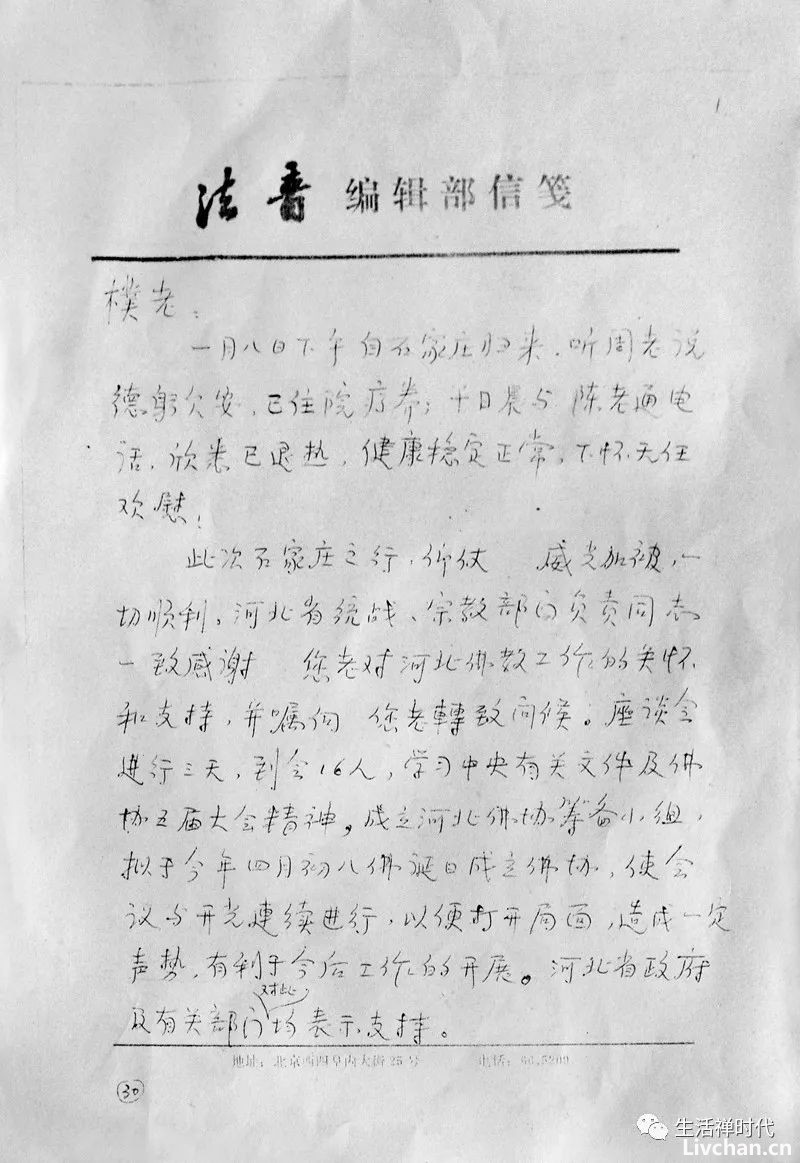 1
法音 编辑部信笺
樸老：
一月八日下午自石家庄归来，听周老说
德躬欠安，已住院疗养；十日晨与陈老通电
话，欣悉已退热，健康稳定正常，下怀无任
欢慰！
此次石家庄之行，仰仗 威光加被，一
切顺利。河北省统战、宗教部门负责同志
一致感谢 您老对河北佛教工作的关怀
和支持，并嘱向 您老轉致问候。座谈会
进行三天，到会16人，学习中央有关文件及佛
协五届大会精神，成立河北佛协筹备小组，
拟于今年四月初八佛诞日成立佛协，使会
议与开光連续进行，以便打开局面，造成一定
声势，有利于今后工作的开展。河北省政府
及有关部门对此均表示支持。
地址：北京西四阜内大街25号 电话：
30
生活禅时代
Livchan.cn